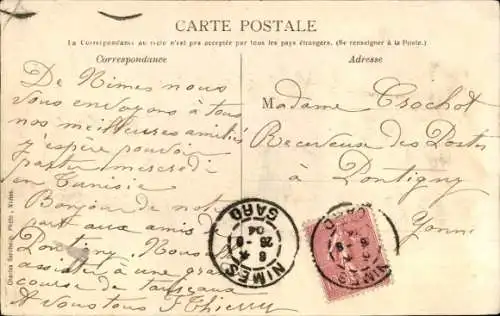 CARTE POSTALE
La Correspondance au recto n'est pas acceptée par tous les pays étrangers. (Se renseigner à la Poste.)
Correspondance
Adresse
De Nimes nous
vous envoyons à tous
nos meilleures amitiés
j'espère pouvoir
partir mercredi
en Tunisie
Bonjour de notre
part aux amis de
Pontigny. Nous
assisté à une
course de taureaux
A vous tous J Thierry
Madame Crochot
Receveuse des Postes
à Pontigny
Yonne
NIMES
GARD
6
26-8
04
NIMES
GARD